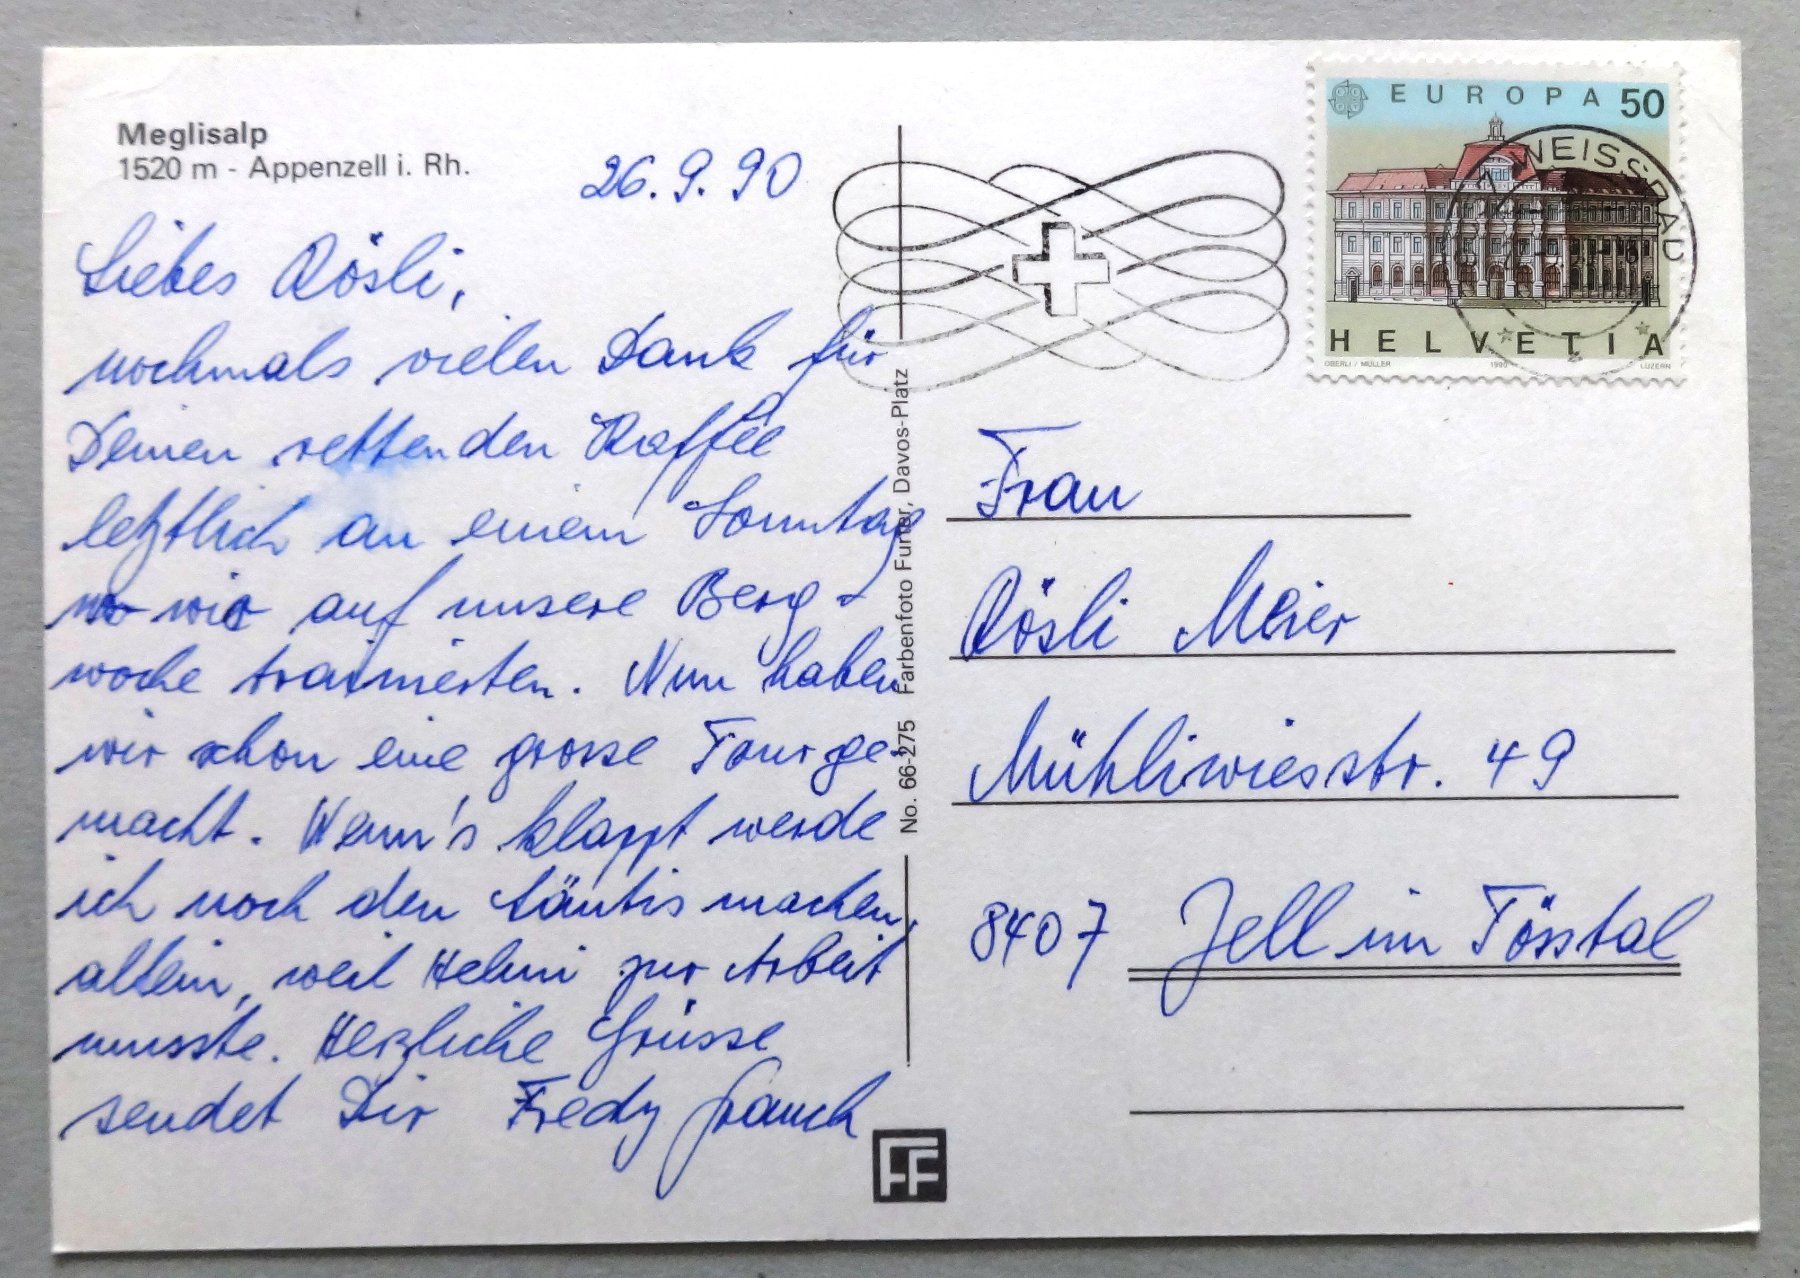 Meglisalp
1520 m - Appenzell i. Rh.
26.9.90
Liebes Rösli,
nochmals vielen Dank für
Deinen rettenden Kaffee
letztlich an einem Sonntag
wo wir auf unsere Berg-
woche trainierten. Nun haben
wir schon eine grosse Tour ge-
macht. Wenn's klappt werde
ich noch den Säntis machen,
allein, weil Helmi zur Arbeit
musste. Herzliche Grüsse
sendet Dir Fredy
No. 66-275 Farbenfoto Furter, Davos-Platz
FF
EUROPA 50
HELVETIA
OBERLI / MÜLLER 1990 LUZERN
WEISSBAD
Frau
Rösli Meier
Mühliwiesstr. 49
8407 Zell im Tösstal